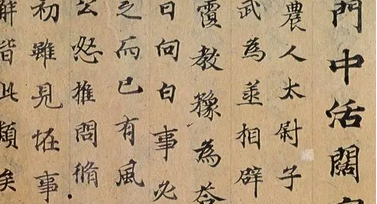 門中活闊
農人太尉子
武為丞相辟
覆教豫為荅
日向白事必
之而已有風
公怒推問脩
初雖見恠事
解皆此類矣